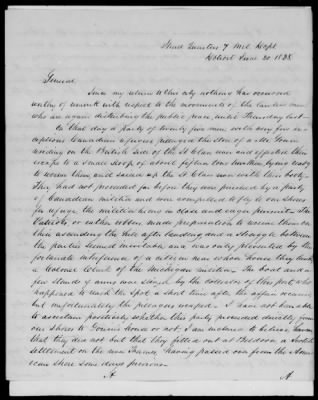 Head Quarters 7 Mil. Dept
Detroit June 30 1838
General
Since my return to this city nothing has occurred
worthy of remark with respect to the movements of the lawless men
who are again disturbing the public peace until Thursday last
On that day a party of twenty five men with very few
exceptions Canadian refugees the Store of a Mr. Gourin
on the British side of the St Clair river and effected their
escape to a small sloop of about fifteen tons burthen lying ready
to receive them and sailed up the St Clair river with their booty.
They had not proceeded far before they were pursued by a party
of Canadian militia and were compelled to fly to our shores
for refuge the militia being in close and eager pursuit. The
Patriots or rather robbers made preparation to receive them on
their ascending the hill after landing and a struggle between
the parties seemed inevitable and was only prevented by the
fortunate interference of a citizen near whose house they landed
a Colonel Clark of the Michigan militia. The boat and a
few stands of arms were seized by the collector of this port who
happened to reach the spot a short time after the affair occurred
but unfortunately the prisoners escaped. I have not been able
to ascertain positively whether this party proceeded directly from
our shores to Gourin's house or not. I am inclined to believe however
that they did not but that they fitted out at Baldoon a Scotch
settlement on the river having passed over from the Ameri
can Shore some days previous
A
A